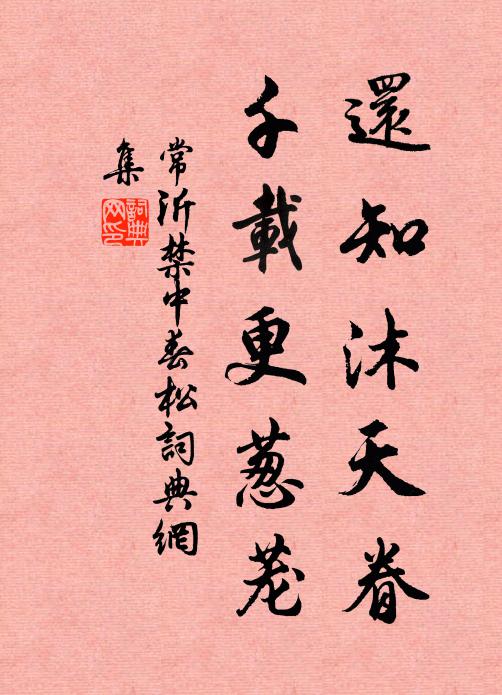 還知沐天眷
千載更葱蘢
常沂禁中春松詞典網
集
詞典
网印